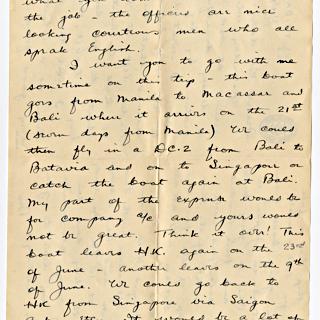 the job - the officers are nice
looking courtious men who all
speak English.
I want you to go with me
sometime on this trip - this boat
goes from Manila to Macassar and
Bali where it arrives on the 21st
(seven days from Manila) We could
then fly in a DC-2 from Bali to
Batavia and on to Singapore or
catch the boat again at Bali.
My part of the expense would be
for company a/c and yours would
not be great. Think it over! This
boat leaves H.K. again on the 23rd
of June - another leaves on the 9th
of June. We could go back to
HK from Singapore via Saigon
Etc. It would be a lot of